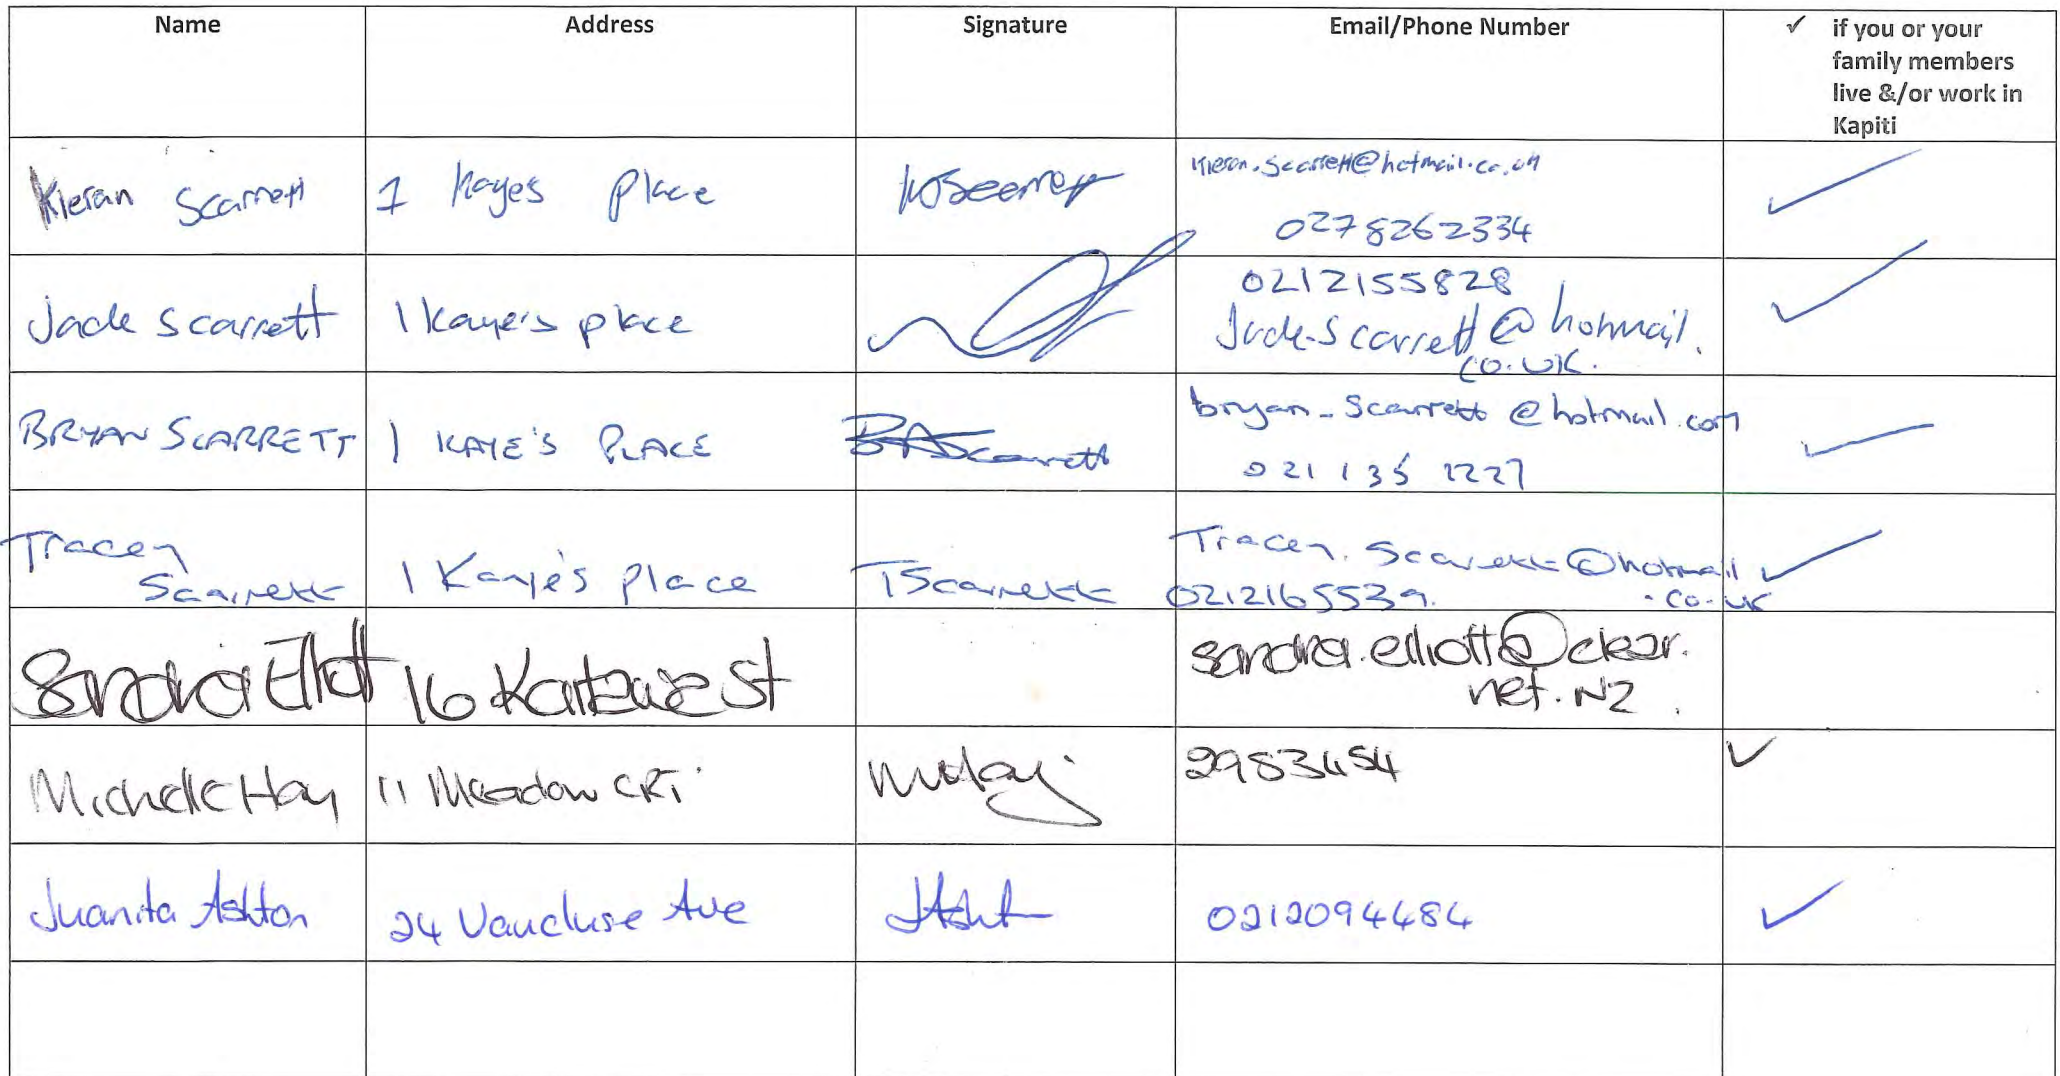 Name Address Signature Email/Phone Number ✓ if you or your
family members
live &/or work in
Kapiti
Kieran Scarrett 1 Kayes Place Kieran.Scarrett@hotmail.co.uk ✓
0278262334
Jade Scarrett 1 Kaye's place 0212155828 ✓
Jade.Scarrett@hotmail.
co.uk.
BRYAN SCARRETT 1 KAYE'S PLACE BAScarrett bryan_scarrett@hotmail.com ✓
021 135 1227
Tracey
Scarrett 1 Kaye's place TScarrett Tracey.Scarrett@hotmail ✓
0212165539. .co.uk
Sandra Elliott 16 St sandra.elliott@clear.
net.NZ
Michelle Hay 11 Meadow CRT. MHay 2983454 ✓
Juanita Ashton 24 Vaucluse Ave JAsht 0212094484 ✓